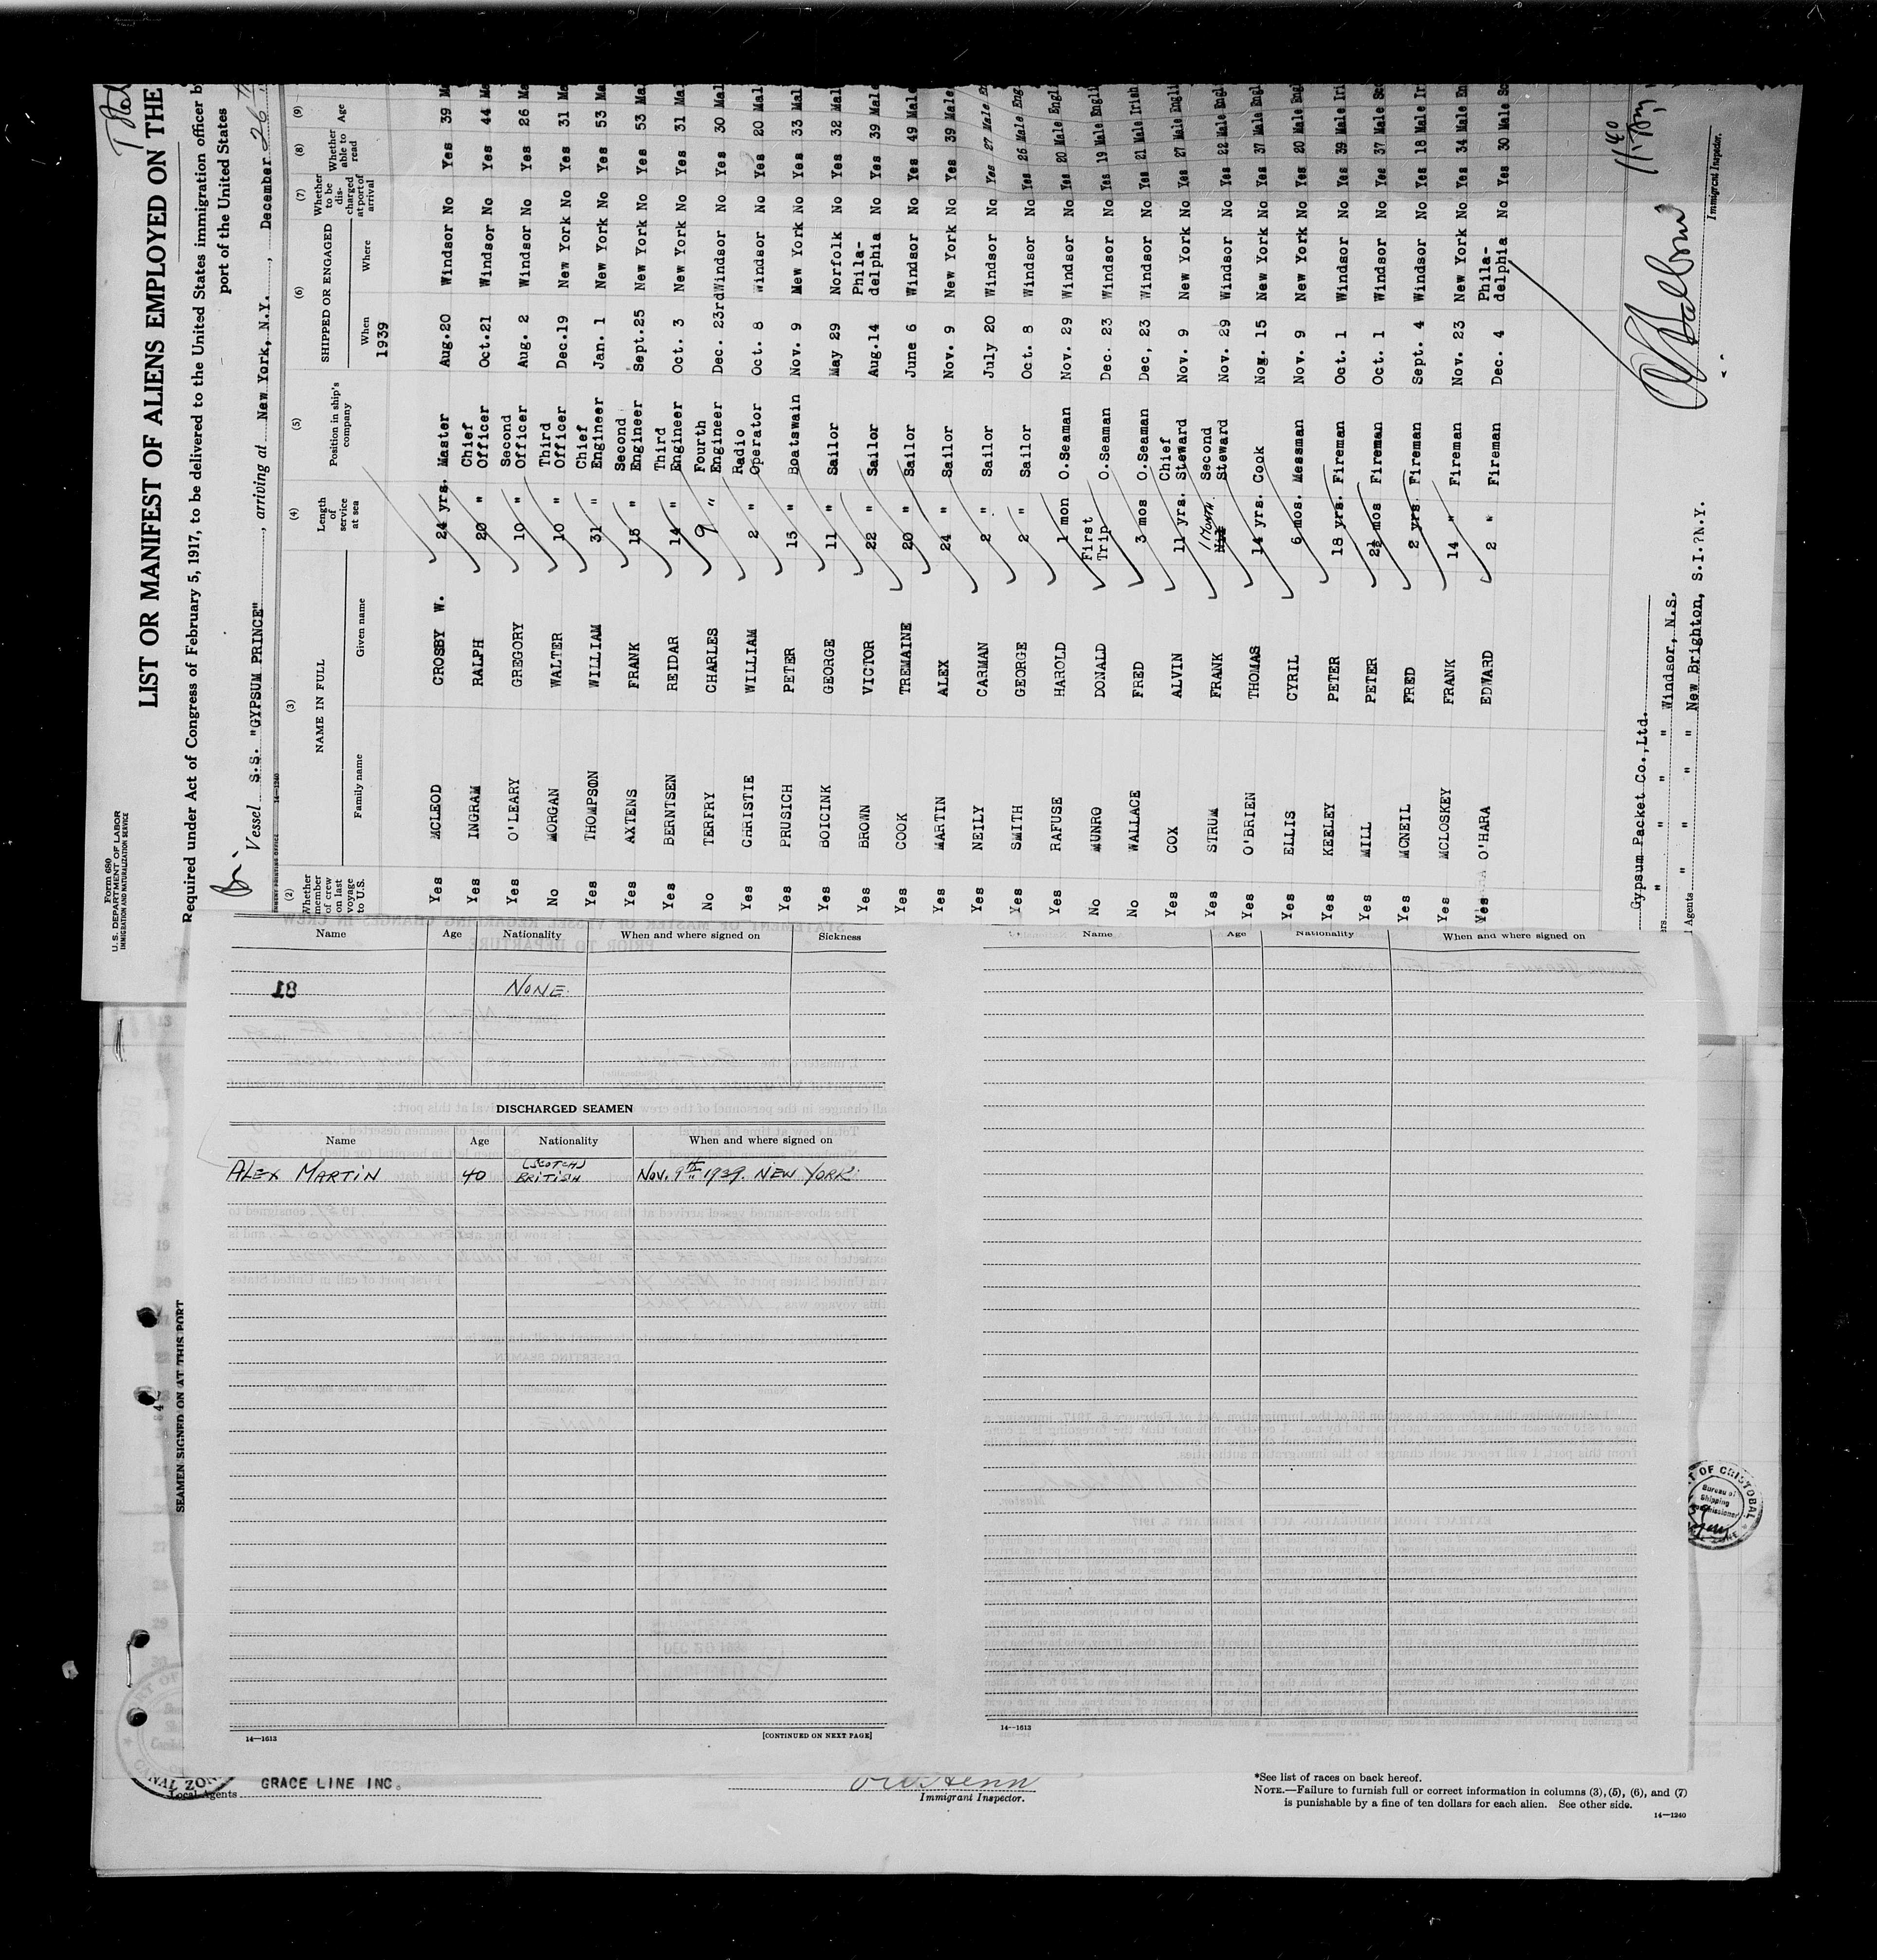 Form 680
U. S. DEPARTMENT OF LABOR
IMMIGRATION AND NATURALIZATION SERVICE
LIST OR MANIFEST OF ALIENS EMPLOYED ON THE
Required under Act of Congress of February 5, 1917, to be delivered to the United States immigration officer b
port of the United States
Vessel S.S. "GYPSUM PRINCE", arriving at New York, N.Y., December 26th
(2) (3) (4) (5) (6) (7) (8) (9)
Whether member of crew on last voyage to U.S. NAME IN FULL Length of service at sea Position in ship's company SHIPPED OR ENGAGED Whether to be discharged at port of arrival Whether able to read Age
Family name Given name When Where
1939
Yes MCLEOD CROSBY W. 24 yrs. Master Aug.20 Windsor No Yes 39 Ma
Yes INGRAM RALPH 20 " Chief Officer Oct.21 Windsor No Yes 44 Ma
Yes O'LEARY GREGORY 10 " Second Officer Aug. 2 Windsor No Yes 26 Ma
No MORGAN WALTER 10 " Third Officer Dec.19 New York No Yes 31 Ma
Yes THOMPSON WILLIAM 31 " Chief Engineer Jan. 1 New York No Yes 53 Ma
Yes AXTENS FRANK 15 " Second Engineer Sept.25 New York No Yes 53 Mal
Yes BERNTSEN REIDAR 14 " Third Engineer Oct. 3 New York No Yes 31 Mal
No TERFRY CHARLES 9 " Fourth Engineer Dec. 23rd Windsor No Yes 30 Mal
Yes CHRISTIE WILLIAM 2 " Radio Operator Oct. 8 Windsor No Yes 20 Mal
Yes PRUSICH PETER 15 " Boatswain Nov. 9 New York No Yes 33 Mal
Yes BOICINK GEORGE 11 " Sailor May 29 Norfolk No Yes 32 Mal
Yes BROWN VICTOR 22 " Sailor Aug.14 Phila-delphia No Yes 39 Male
Yes COOK TREMAINE 20 " Sailor June 6 Windsor No Yes 49 Male
Yes MARTIN ALEX 24 " Sailor Nov. 9 New York No Yes 39 Male
Yes NEILY CARMAN 2 " Sailor July 20 Windsor No Yes 27 Male En
Yes SMITH GEORGE 2 " Sailor Oct. 8 Windsor No Yes 26 Male Eng
Yes RAFUSE HAROLD 1 mon O.Seaman Nov. 29 Windsor No Yes 20 Male Engli
No MUNRO DONALD First Trip O.Seaman Dec. 23 Windsor No Yes 19 Male Engli
No WALLACE FRED 3 mos O.Seaman Dec, 23 Windsor No Yes 21 Male Irish
Yes COX ALVIN 11 yrs. Chief Steward Nov. 9 New York No Yes 27 Male Engli
Yes STRUM FRANK 1 MONTH Second Steward Nov. 29 Windsor No Yes 22 Male Engl
Yes O'BRIEN THOMAS 14 yrs. Cook Nov. 15 New York No Yes 37 Male Engl
Yes ELLIS CYRIL 6 mos. Messman Nov. 9 New York No Yes 20 Male Engl
Yes KEELEY PETER 18 yrs. Fireman Oct. 1 Windsor No Yes 39 Male Iri
Yes MILL PETER 2½ mos Fireman Oct. 1 Windsor No Yes 37 Male Sco
Yes MCNEIL FRED 2 yrs. Fireman Sept. 4 Windsor No Yes 18 Male Ir
Yes MCLOSKEY FRANK 14 " Fireman Nov. 23 New York No Yes 34 Male En
Yes O'HARA EDWARD 2 " Fireman Dec. 4 Phila-delphia No Yes 30 Male Sc
Gypsum Packet Co.,Ltd.
ers " " " " Windsor, N.S.
l Agents " " " " New Brighton, S.I.?N.Y.
Immigrant Inspector.
Name Age Nationality When and where signed on Sickness
18 NONE
DISCHARGED SEAMEN
Name Age Nationality When and where signed on
ALEX MARTIN 40 (SCOTCH) BRITISH NOV. 9th 1939. NEW YORK.
14—1613 [CONTINUED ON NEXT PAGE]
SEAMEN SIGNED ON AT THIS PORT
Name Age Nationality When and where signed on
14—1613
OF CRISTOBAL
Bureau of
Shipping
CANAL ZON
Local Agents GRACE LINE INC.
Immigrant Inspector.
*See list of races on back hereof.
NOTE.—Failure to furnish full or correct information in columns (3), (5), (6), and (7)
is punishable by a fine of ten dollars for each alien. See other side.
14—1240